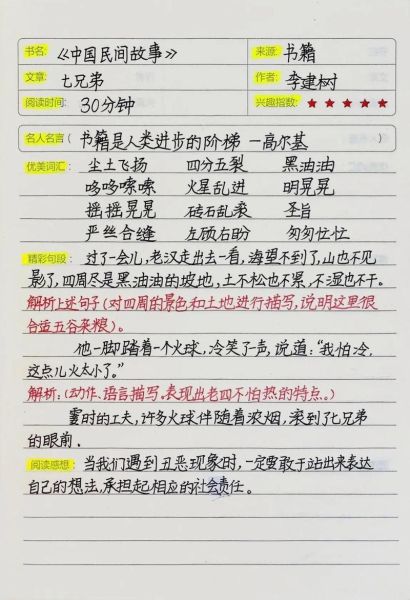 书名: 《中国民间故事》 来源: 书籍
文章: 七兄弟 作者: 李建树
阅读时间: 30分钟 兴趣指数: ★★★★★
名人名言 ( 书籍是人类进步的阶梯 —高尔基 )
优美词汇: 尘土飞扬 四分五裂 黑油油
哆哆嗦嗦 火星乱迸 明晃晃
摇摇晃晃 砖石乱滚 圣旨
严丝合缝 左顾右盼 匆匆忙忙
精彩句段: 过了一会儿,老汉走出去一看,海望不到了,山也不见
影了,四周尽是黑油油的坡地,土不松也不累,不湿也不干。
解析上述句子(对四周的景色和土地进行描写,说明这里很
合适五谷杂粮)。
他一脚踏着一个火球,冷笑了声,说道:“我怕冷,
这点儿火太小了。”
解析:(动作、语言描写,表现出老四不怕热的特点。)
霎时的工夫,许多火球伴随着浓烟,滚到了七兄弟
的眼前.
阅读感想: 当我们遇到丑恶现象时,一定要敢于站出来表达
自己的想法,承担起相应的社会责任。